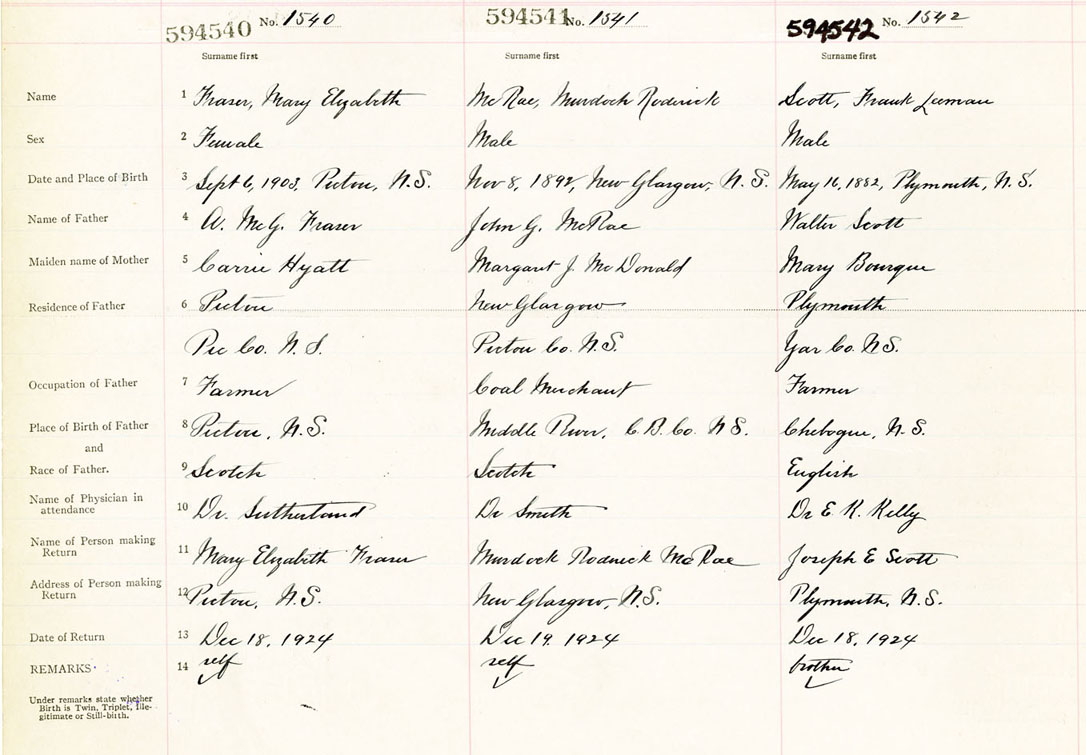 594540 No. 1540 594541 No. 1541 594542 No. 1542
Surname first Surname first Surname first
Name 1 Fraser, Mary Elizabeth McRae, Murdock Roderick Scott, Frank Leeman
Sex 2 Female Male Male
Date and Place of Birth 3 Sept 6, 1903, Pictou, N.S. Nov 8, 1892, New Glasgow, N.S. May 16, 1882, Plymouth, N.S.
Name of Father 4 A. McG. Fraser John G. McRae Walter Scott
Maiden name of Mother 5 Carrie Hyatt Margaret J. McDonald Mary Bourque
Residence of Father 6 Pictou New Glasgow Plymouth
Pic Co. N.S. Pictou Co. N.S. Yar Co. N.S.
Occupation of Father 7 Farmer Coal Merchant Farmer
Place of Birth of Father 8 Pictou, N.S. Middle River, C.B. Co. N.S. Chebogue, N.S.
and
Race of Father. 9 Scotch Scotch English
Name of Physician in
attendance 10 Dr. Sutherland Dr Smith Dr E. K. Kelly
Name of Person making
Return 11 Mary Elizabeth Fraser Murdock Roderick McRae Joseph E Scott
Address of Person making
Return 12 Pictou, N.S. New Glasgow, N.S. Plymouth, N.S.
Date of Return 13 Dec 18, 1924 Dec 19, 1924 Dec 18, 1924
REMARKS 14 self self brother
Under remarks state whether
Birth is Twin, Triplet, Ille-
gitimate or Still-birth.